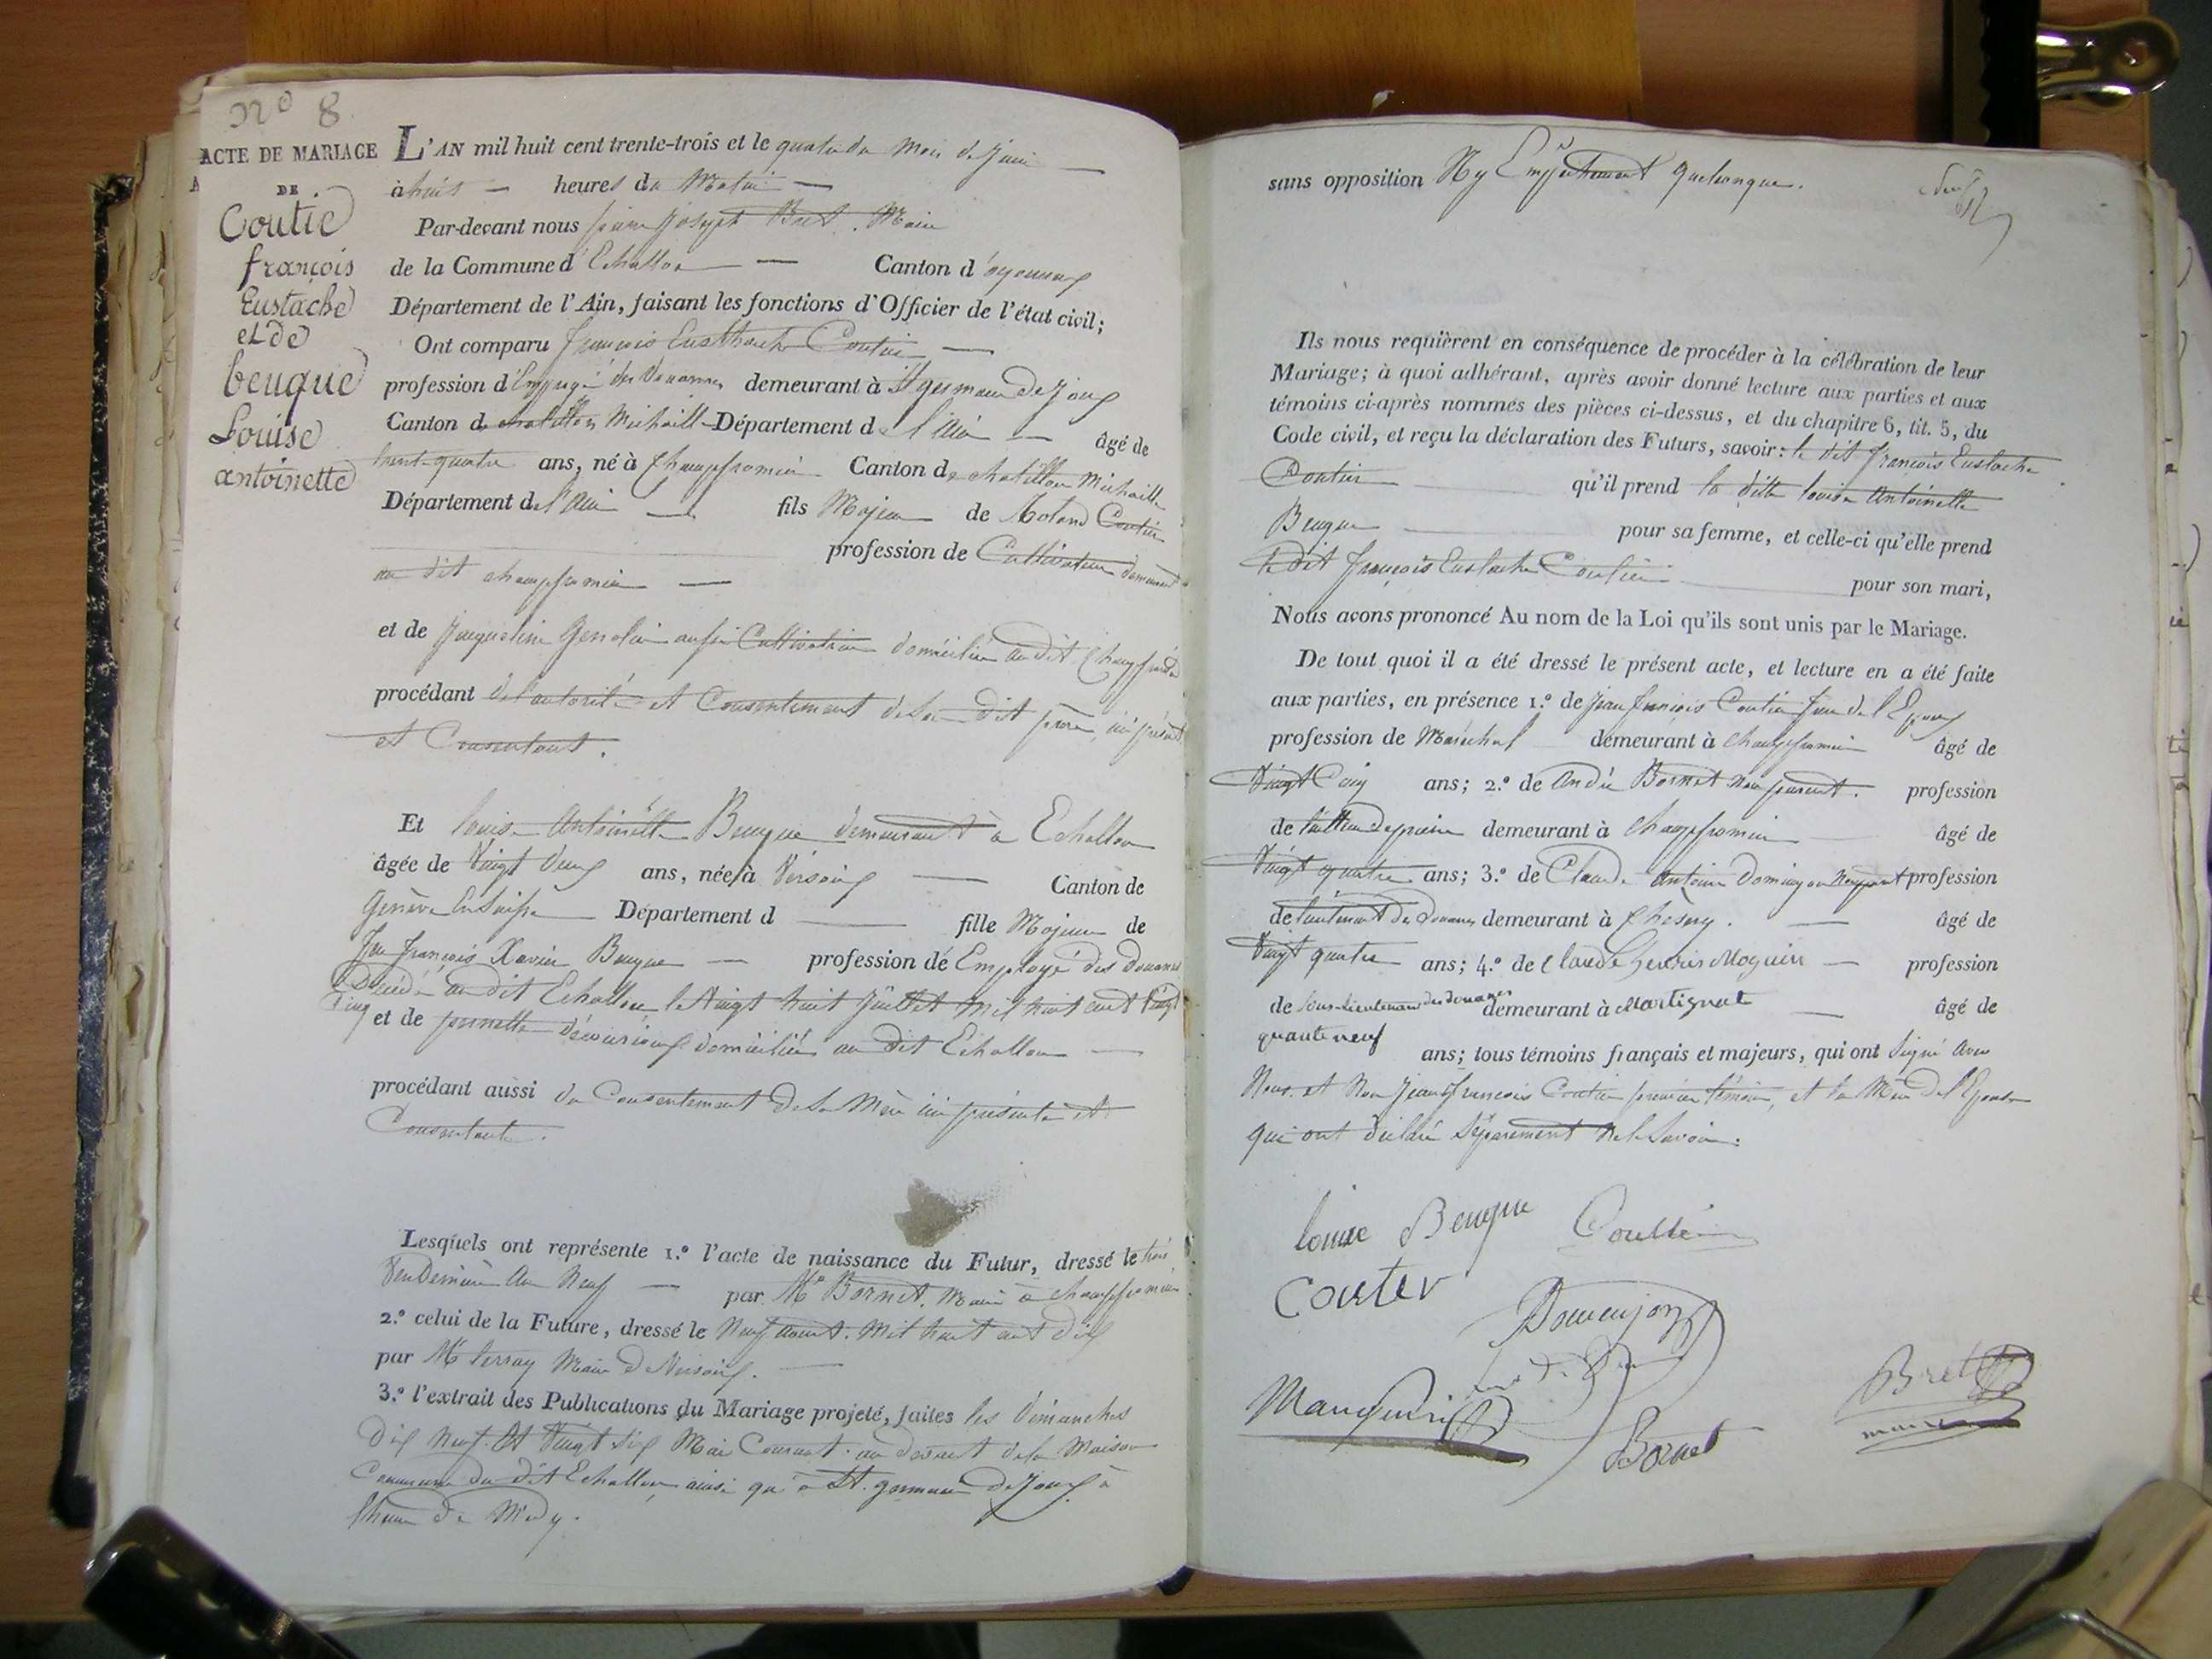 No 8
ACTE DE MARIAGE
DE
Coutie
françois
Eustache
et de
beuque
Louise
antoinette
L'AN mil huit cent trente-trois et le quatre du Mois de Juin
à huit heures du Matin
Par-devant nous pierre Joseph Bret. Maire
de la Commune d'Echallon Canton d'oyonnax
Département de l'Ain, faisant les fonctions d'Officier de l'état civil;
Ont comparu françois Eusthache Coutier
profession d'Employé des Douannes demeurant à St germain De Joux
Canton de chatillon Michaille Département de l'Ain âgé de
trent-quatre ans, né à Champfromier Canton de chatillon Michaille
Département de l'Ain fils Majeur de Roland Coutier
profession de Cultivateur demeurant
au dit champfromier
et de Jacqueline Genolin aussi Cultivatrice domicilié au dit Champfromier
procédant de l'autorité et Consentement de Son dit père, ici présent
et Consentant.
Et louise Antoinette Beuque demeurant à Echallon
âgée de Vingt Deux ans, née à Versoix Canton de
Genève En Suisse Département d fille Majeure de
feu françois Xavier Beuque profession de Employé des Douanes
Décédé au dit Echallon le Vingt huit Juillet Mil huit cent Vingt
Cinq et de pernette domiciliée au dit Echallon
procédant aussi du Consentement de Sa Mère ici présente et
Consentante.
Lesquels ont représenté 1.º l'acte de naissance du Futur, dressé le trois
Vendemiaire An Neuf par Mr Bornet, Maire à champfromier
2.º celui de la Future, dressé le Neuf aoust. Mil huit cent dix
par Mr Maire de Versoix.
3.º l'extrait des Publications du Mariage projeté, faites les Dimanches
Dix Neuf Et Vingt Six Mai Courant au devant de la Maison
Commune du dit Echallon ainsi qu'à St. germain De Joux à
l'heure de Midy.
sans opposition Ny Empêchement quelconque.
Ils nous requièrent en conséquence de procéder à la célébration de leur
Mariage; à quoi adhérant, après avoir donné lecture aux parties et aux
témoins ci-après nommés des pièces ci-dessus, et du chapitre 6, tit. 5, du
Code civil, et reçu la déclaration des Futurs, savoir: le dit françois Eustache
Coutier qu'il prend la dite louise Antoinette
Beuque pour sa femme, et celle-ci qu'elle prend
le dit françois Eustache Coutier pour son mari,
Nous avons prononcé Au nom de la Loi qu'ils sont unis par le Mariage.
De tout quoi il a été dressé le présent acte, et lecture en a été faite
aux parties, en présence 1.º de Jean françois Coutier frère de l'Epoux
profession de Maréchal demeurant à Champfromier âgé de
Vingt Cinq ans; 2.º de André Bornet Non parent. profession
de tailleur de pierre demeurant à Champfromier âgé de
Vingt quatre ans; 3.º de Claude Antoine Non parent profession
de lieutenant des Douanes demeurant à Chésery. âgé de
Vingt quatre ans; 4.º de Claude Moguin profession
de Sous-Lieutenant des douanes demeurant à Martignat âgé de
quarante neuf ans; tous témoins français et majeurs, qui ont Signé avec
Nous. et Non Jean françois Coutier premier témoin, et la Mère de l'Epouse
qui ont déclaré Séparement Ne le Savoir.
louise Beuque Couttié
Coutier
Domenjon
Mauguin
Bornet
Bret
maire